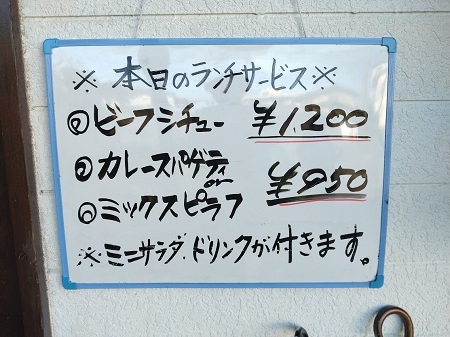 ※本日のランチサービス※
◎ビーフシチュー ¥1,200
◎カレースパゲティ
or ¥950
◎ミックスピラフ
※ミニサラダ、ドリンクが付きます。